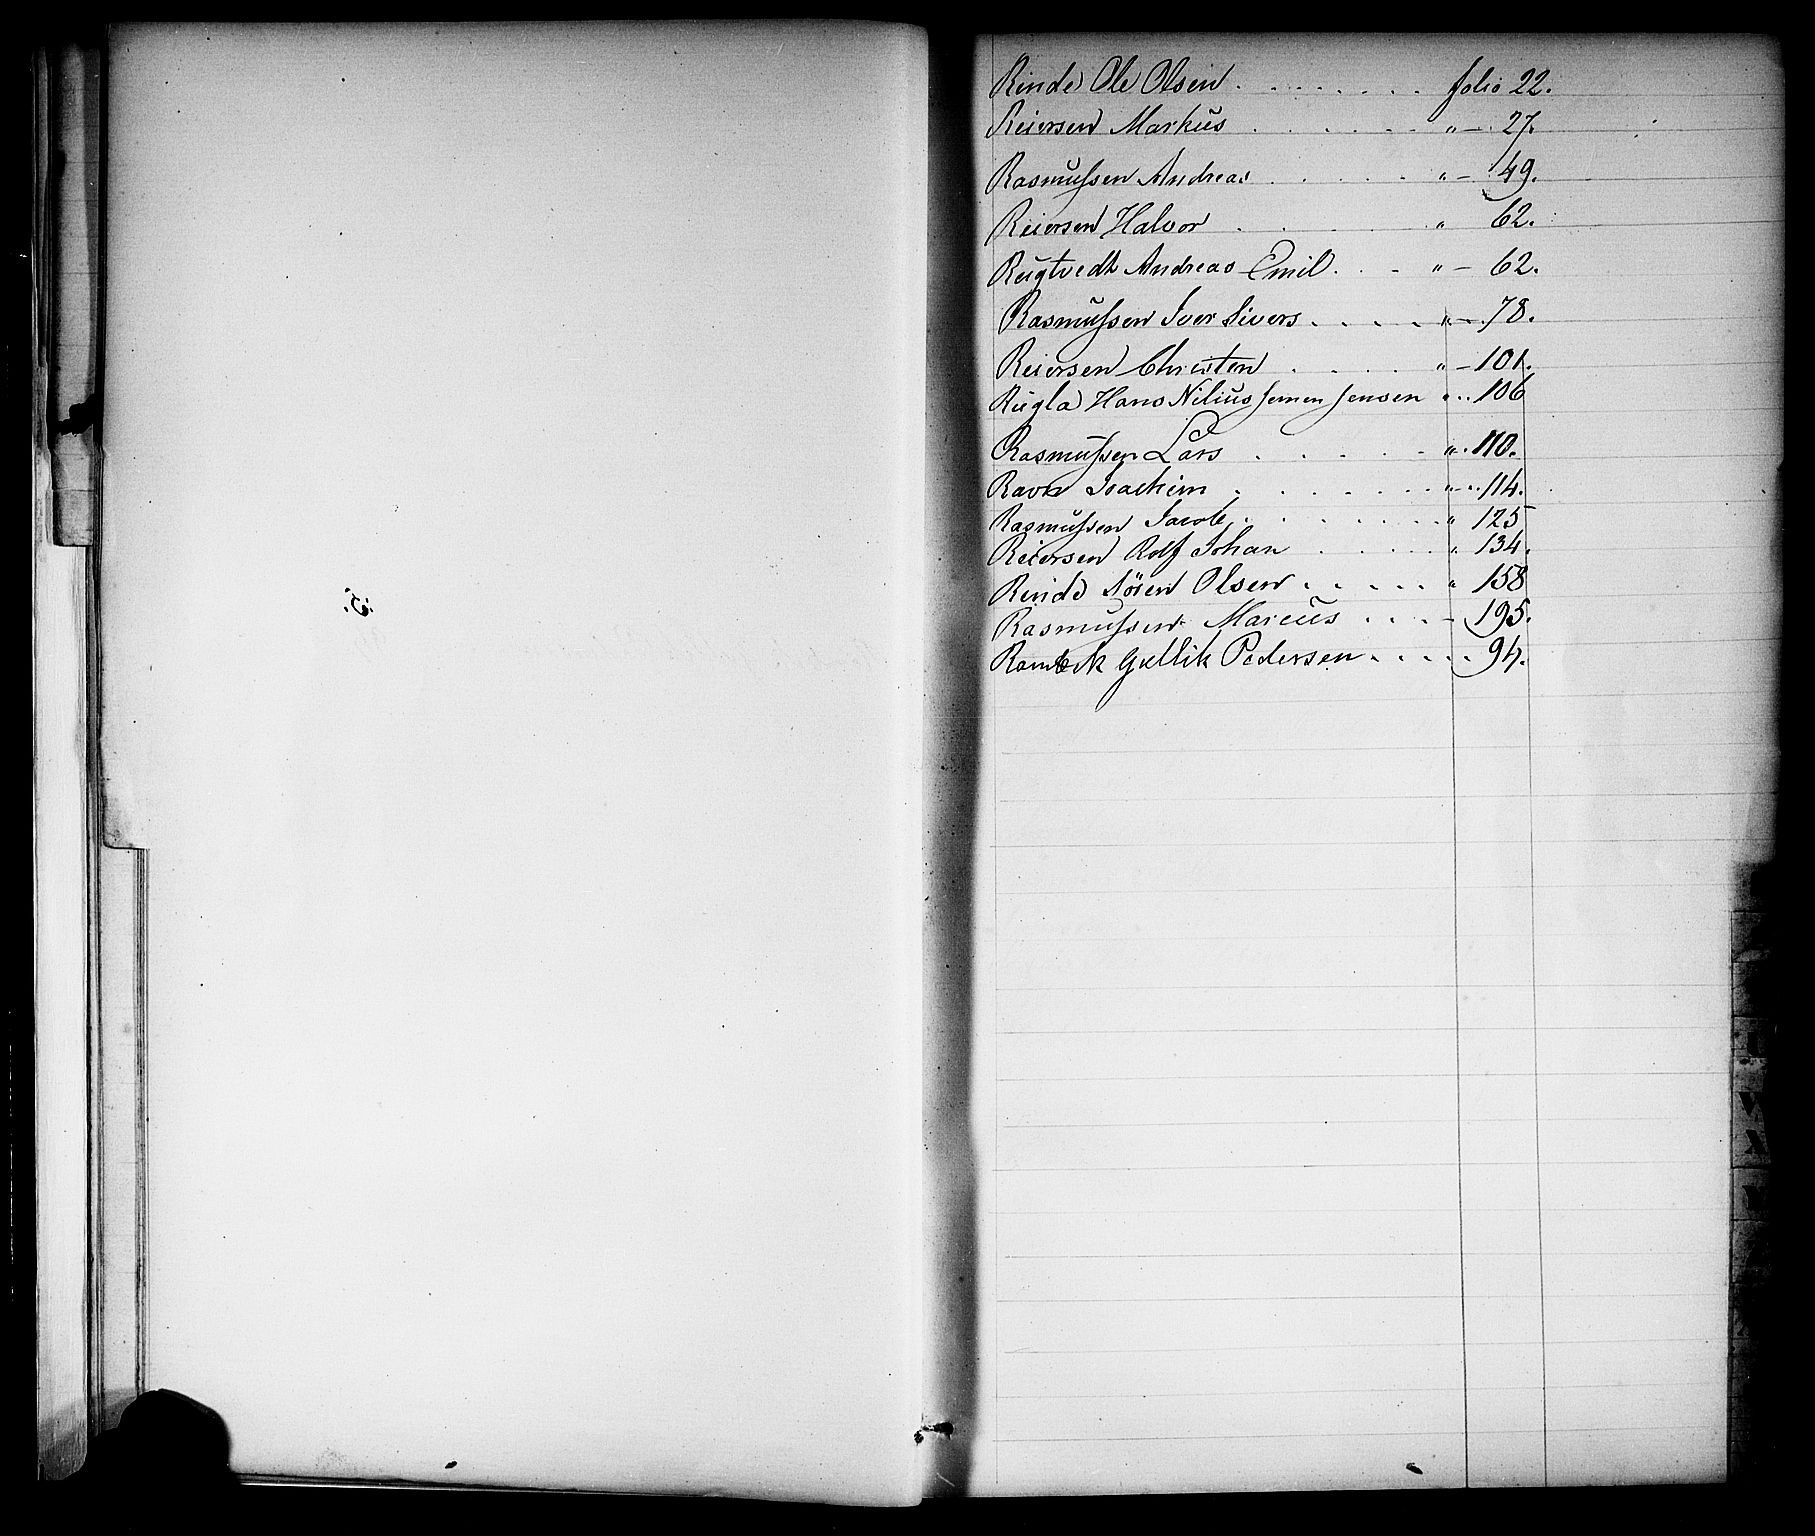 Rinde Ole Olsen . . . . . . . folio 22.
Reiersen Markus . . . . . " — 27.
Rasmussen Andreas . . . . " — 49.
Reiersen Halvor . . . . " 62.
Rugtvedt Andreas Emil . . - " — 62.
Rasmussen Iver Sivers . . . . " — 78.
Reiersen Christen . . . " — 101.
Rugla Hans Nilius Jensen " . . 106
Rasmussen Lars . . . . . " . 110.
Ravn Joachim . . . . . " - . 114.
Rasmussen Jacob . . . . . " 125
Reiersen Rolf Johan . . . . " 134.
Rinde Sören Olsen . . . . . " 158
Rasmussen Marcus . . . . - 195.
Rambek Gullik Pedersen . . . . . 94.
W
X